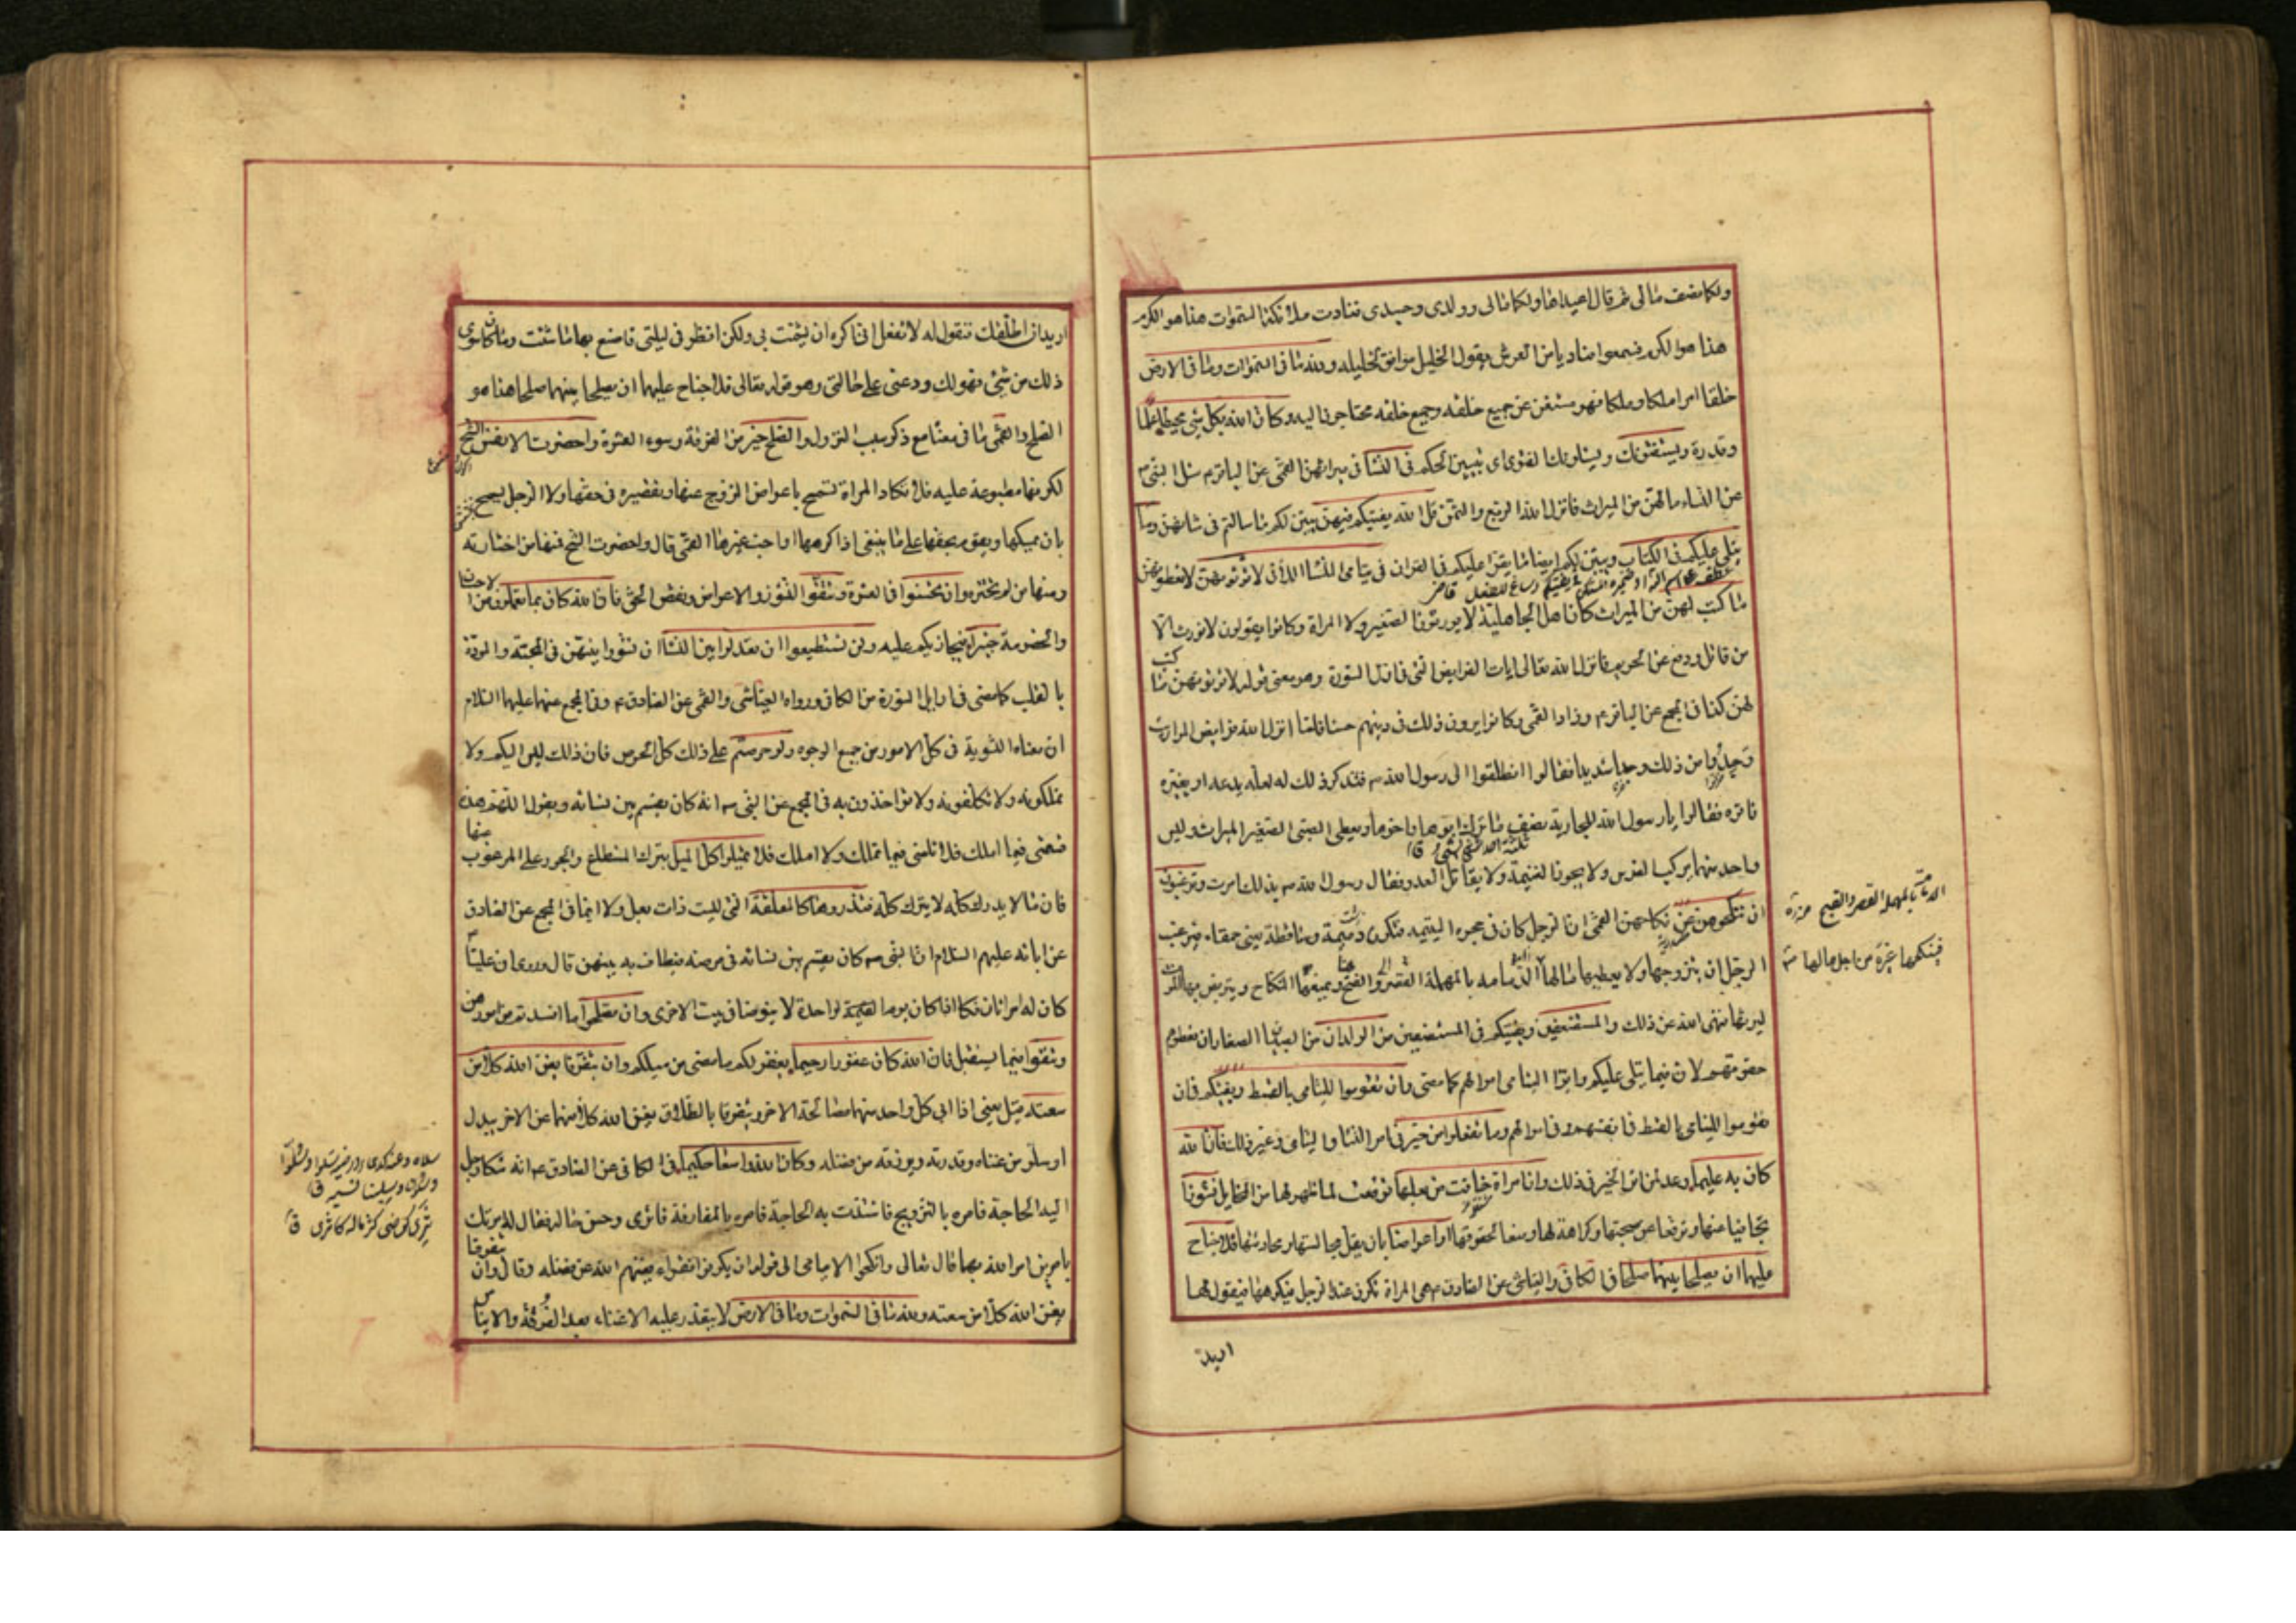 ولكما نصف مالي ثم قال اعيداها ولكما مالي وولدي وجسدي فنادت ملائكة السموات هذا هو الكرم
هذا هو الكرم فسمعوا مناديا من العرش يقول الخليل موافق لخليله ولله ما في السموات وما في الارض
خلقا امرا ملكا وملكا فهو مستغن عن جميع خلقه وجميع خلقه محتاجون اليه وكان الله بكل شئ محيطا علما
وقدرة ويستفتونك ويسئلونك الفتوى اى تبيين الحكم في النسا في ميراثهن القمى عن الباقر ع سئل النبى ص
عن النساء ما لهن من الميراث فانزل الله الربع والثمن قل الله يفتيكم فيهن يبين لكم ما سالتم في شانهن وما
يتلى عليكم في الكتاب ويبين لكم ايضا ما يقرا عليكم في القران في يتامى النسا اللاتى لا تؤتونهن لا تعطونهن
ما كتب لهن من الميراث كان اهل الجاهلية لا يورثون الصغير ولا المراة وكانوا يقولون لا نورث الا
من قاتل ودفع عن الحريم فانزل الله تعالى ايات الفرايض التى في اول السورة وهو معنى قوله لا تؤتونهن ما كتب
لهن كذا في المجمع عن الباقر ع وزاد القمى وكانوا يرون ذلك في دينهم حسنا فلما انزل الله فرايض المواريث
وجدوا من ذلك وجدا شديدا فقالوا انطلقوا الى رسول الله ص فنذكر ذلك له لعله يدعه او يغيره
فاتوه فقالوا يا رسول الله للجارية نصف ما ترك ابوها واخوها ويعطى الصبى الصغير الميراث وليس
واحد منهما يركب الفرس ولا يحوز الغنيمة ولا يقاتل العدو فقال رسول الله ص بذلك امرت وترغبون
ان تنكحوهن عن نكاحهن القمى ان الرجل كان في حجره اليتيمة فتكون دميمة وساقطة يعنى حمقاء فيرغب
الرجل ان يتزوجها ولا يعطيها مالها الدمامة بالمهملة القصر والقبح ويمنعها النكاح ويتربص بها الموت
ليرثها فنهى الله عن ذلك والمستضعفين ويفتيكم في المستضعفين من الولدان من الصبيان الصغار ان تعطوهم
حقوقهم لان فيما يتلى عليكم واتوا اليتامى اموالهم كما مضى وان تقوموا لليتامى بالقسط ويفتيكم في ان
تقوموا لليتامى بالقسط في انفسهم وفي اموالهم وما تفعلوا من خير في امر النسا واليتامى وغير ذلك فان الله
كان به عليما وعد لمن اثر الخير في ذلك وان امراة خافت من بعلها توقعت لما ظهر لها من المخايل نشوزا
تجافيا عنها وترفعا عن صحبتها وكراهة لها ومنعا لحقوقها او اعراضا بان يقل مجالستها ومحادثتها فلا جناح
عليهما ان يصلحا بينهما صلحا في الكافي والعياشى عن الصادق ع هى المراة تكون عند الرجل فيكرهها فيقول لها
اريد
فينكحها غيره من اجل مالها
اريد ان اطلقك فتقول له لا تفعل انى اكره ان يشمت بى ولكن انظر في ليلتى فاصنع بها ما شئت وما كان سوى
ذلك من شئ فهو لك ودعنى على حالتى وهو قوله تعالى فلا جناح عليهما ان يصلحا بينهما صلحا هذا هو
الصلح والقمى ما في معناه مع ذكر سبب النزول والصلح خير من الفرقة وسوء العشرة واحضرت الانفس الشح
لكونها مطبوعة عليه فلا تكاد المراة تسمح باعراض الزوج عنها وتقصيره في حقها ولا الرجل يسمح
بان يمسكها ويقوم بحقها على ما ينبغى اذا كرهها او احب غيرها القمى قال واحضرت الشح فمنها من اختارته
ومنها من لم تختره وان تحسنوا في العشرة وتتقوا النشوز والاعراض ونقض الحق فان الله كان بما تعملون من الاحسان
والخصومة خبيرا فيجازيكم عليه ولن تستطيعوا ان تعدلوا بين النسا ان تسووا بينهن في المحبة والمودة
بالقلب كما مضى في اوايل السورة من الكافي ورواه العياشى والقمى عن الصادق ع وفي المجمع عنهما عليهما السلام
ان معناه التسوية في كل الامور من جميع الوجوه ولو حرصتم على ذلك كل الحرص فان ذلك ليس اليكم ولا
تملكونه ولا تكلفونه ولا تؤاخذون به في المجمع عن النبى ص انه كان يقسم بين نسائه ويقول اللهم هذه
قسمتى فيما املك فلا تلمنى فيما تملك ولا املك فلا تميلوا كل الميل بترك المستطاع والجور على المرغوب عنها
فان ما لا يدرك كله لا يترك كله فتذروها كالمعلقة التى ليست ذات بعل ولا ايما في المجمع عن الصادق
عن ابائه عليهم السلام ان النبى ص كان يقسم بين نسائه في مرضه فيطاف به بينهن قال وروى ان عليا ع
كان له امراتان فكان اذا كان يوم القيمة لواحدة لا يتوضا في بيت الاخرى وان تصلحوا ما افسدتم من امورهن
وتتقوا فيما يستقبل فان الله كان غفورا رحيما يغفر لكم ما مضى من ميلكم وان يتفرقا يغن الله كلا من
سعته قيل يعنى اذا ابى كل واحد منهما مصالحة الاخر ويتفرقا بالطلاق يغن الله كلا منهما عن الاخر ببدل
او سلو من غناه وقدرته ويرزقه من فضله وكان الله واسعا حكيما في الكافي عن الصادق ع انه شكا رجل
اليه الحاجة فامره بالتزويج فاشتدت به الحاجة فامره بالمفارقة فاثرى وحسن حاله فقال له امرتك
بامرين امر الله بهما قال تعالى وانكحوا الايامى الى قوله ان يكونوا فقراء يغنهم الله من فضله وقال وان يتفرقا
يغن الله كلا من سعته ولله ما في السموات وما في الارض لا يتعذر عليه الاغناء بعد الفرقة والايناس